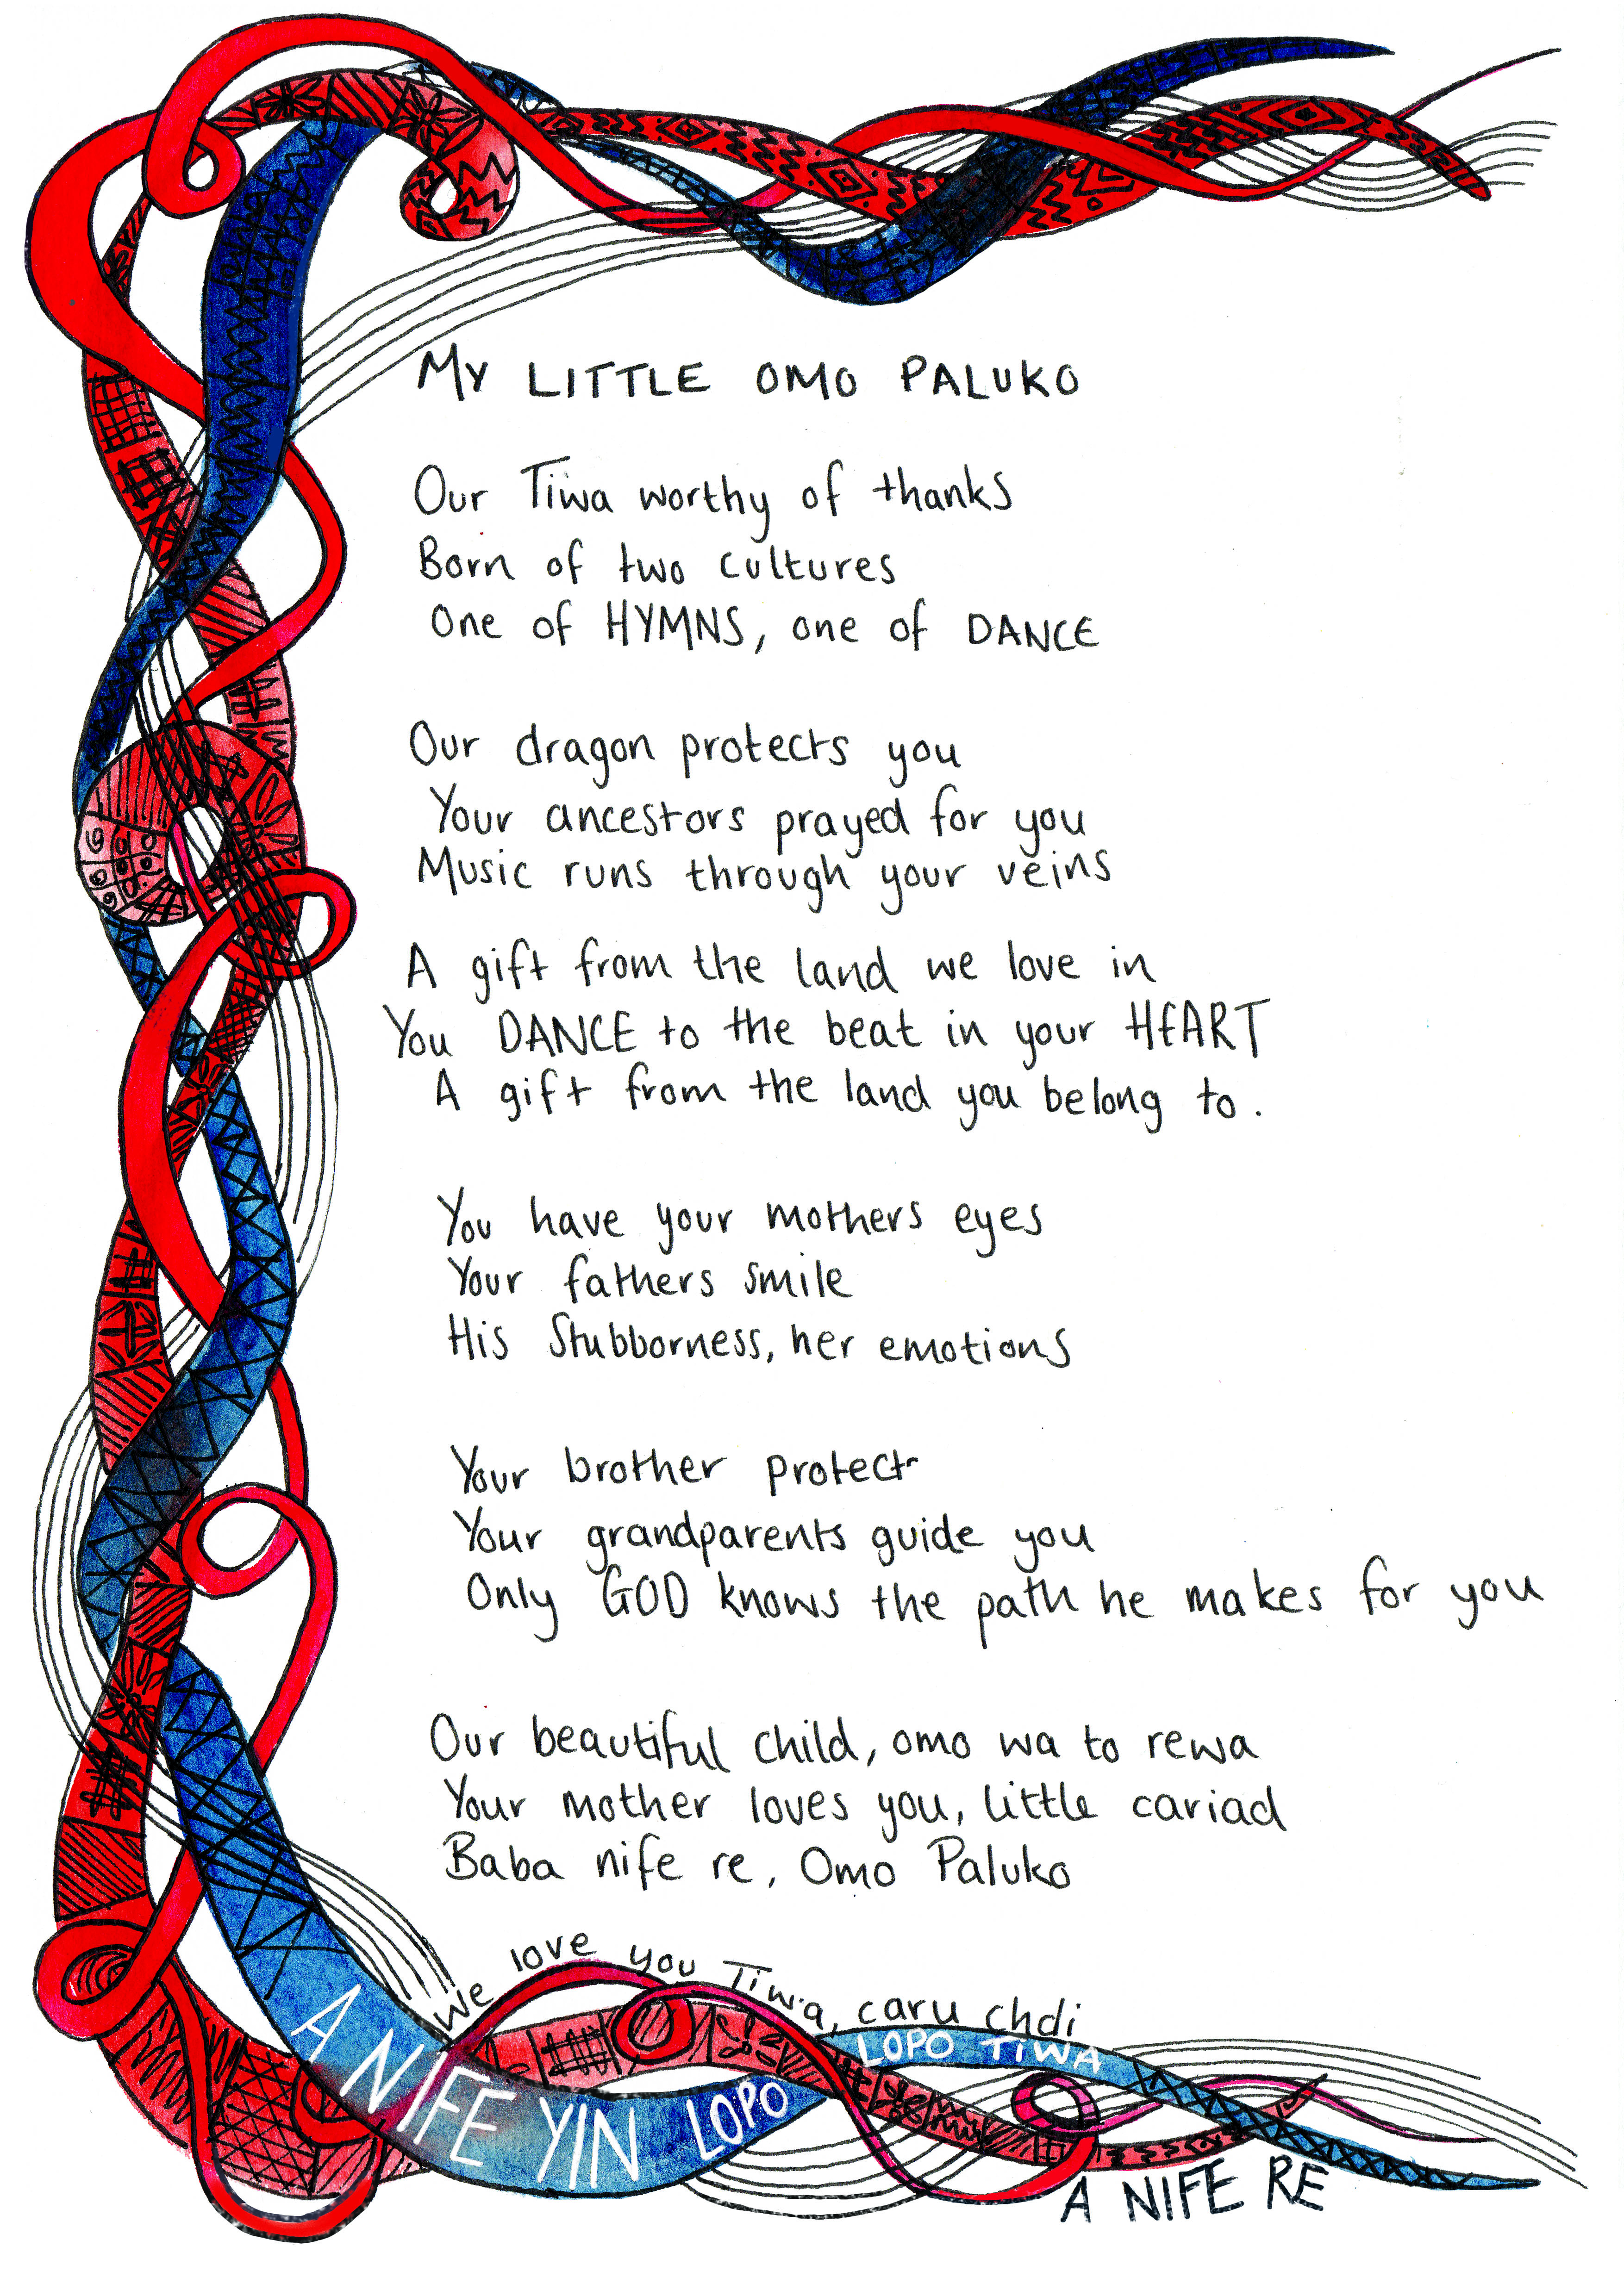 MY LITTLE OMO PALUKO
Our Tiwa worthy of thanks
Born of two cultures
One of HYMNS, one of DANCE
Our dragon protects you
Your ancestors prayed for you
Music runs through your veins
A gift from the land we love in
You DANCE to the beat in your HEART
A gift from the land you belong to.
You have your mothers eyes
Your fathers smile
His Stubborness, her emotions
Your brother protect
Your grandparents guide you
Only GOD knows the path he makes for you
Our beautiful child, omo wa to rewa
Your mother loves you, little cariad
Baba nife re, Omo Paluko
We love you Tiwa, caru chdi
A NIFE YIN LOPO
LOPO TIWA
A NIFE RE